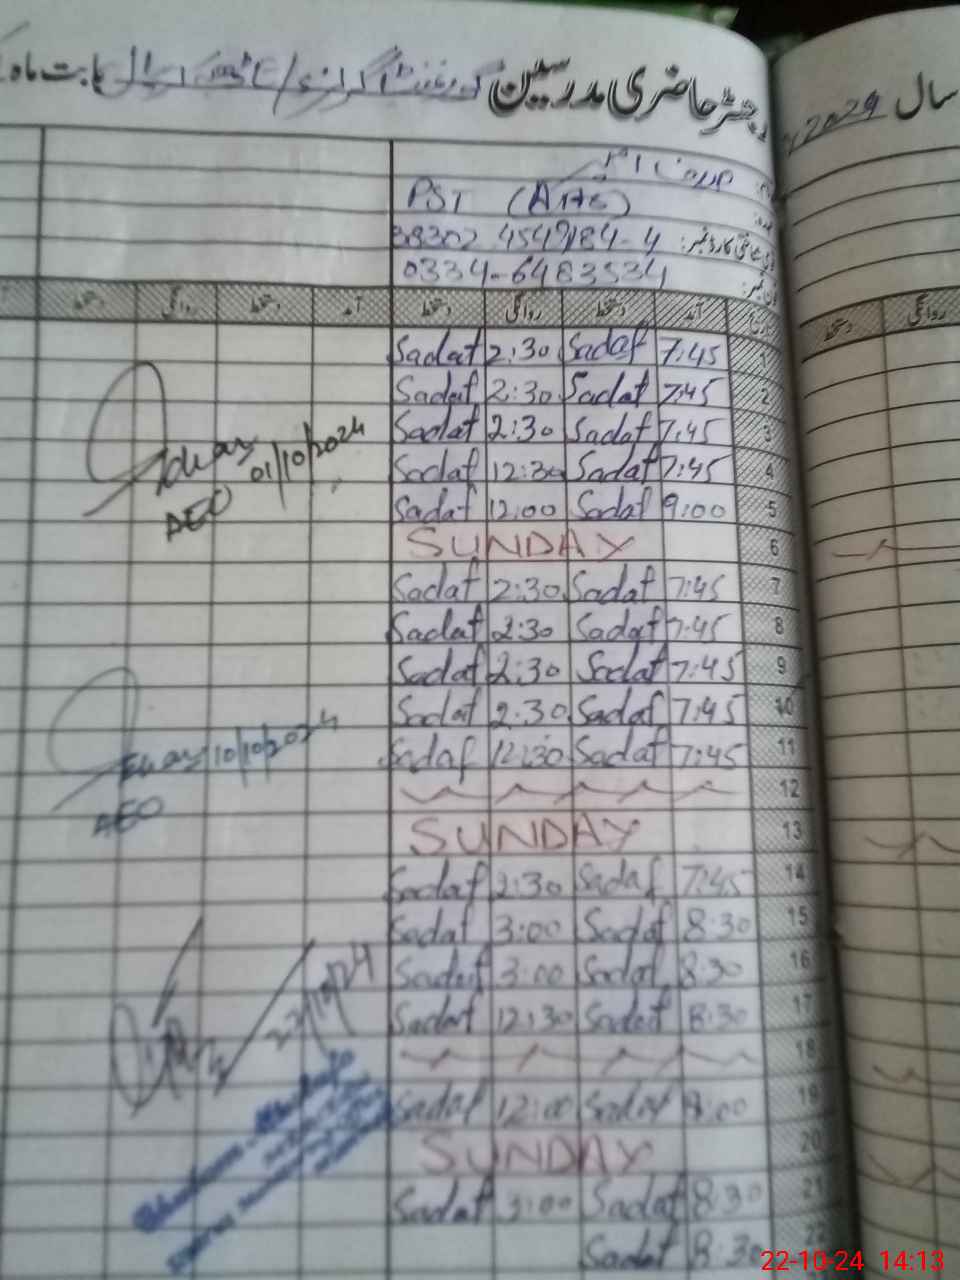 رجسٹر حاضری مدرسین گورنمنٹ گرلز بابت ماہ
سال 2024
صدف
PST (Arts)
38302 4549184-4
0334-6483534
دستخط روانگی دستخط آمد دستخط روانگی دستخط آمد تاریخ
Sadaf 2:30 Sadaf 7:45 1
Sadaf 2:30 Sadaf 7:45 2
Sadaf 2:30 Sadaf 7:45 3
Sadaf 12:30 Sadaf 7:45 4
Sadaf 12:00 Sadaf 9:00 5
SUNDAY 6
Sadaf 2:30 Sadaf 7:45 7
Sadaf 2:30 Sadaf 7:45 8
Sadaf 2:30 Sadaf 7:45 9
Sadaf 2:30 Sadaf 7:45 10
Sadaf 12:30 Sadaf 7:45 11
12
SUNDAY 13
Sadaf 2:30 Sadaf 7:45 14
Sadaf 3:00 Sadaf 8:30 15
Sadaf 3:00 Sadaf 8:30 16
Sadaf 12:30 Sadaf 8:30 17
18
Sadaf 12:00 Sadaf 8:00 19
SUNDAY 20
Sadaf 3:00 Sadaf 8:30 21
Sadaf 8:30 22
01/10/2024
AEO
10/10/2024
AEO
22/10/24
دستخط روانگی
22-10-24 14:13